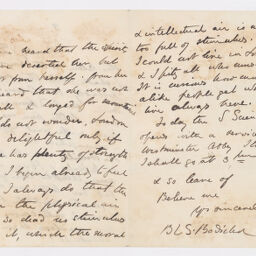 heard that the
deserted her, but
from herself. from her
heard that she was not
& longed for mountains
do not wonder. London
delightful only if
has plenty of strength
I begin already to feel
I always do that the
the physical air
so dead no stimulus
it, which the moral
& intellectual air is a
too full of stimulus.
I could not live in
& I pity all who must
It is curious how much
alike people get who
live always here.
To day the S
opens with a service
Westminster Abby
I shall go at 3
& so leave off
Believe me
Yrs sincerely
BLS Bodichon